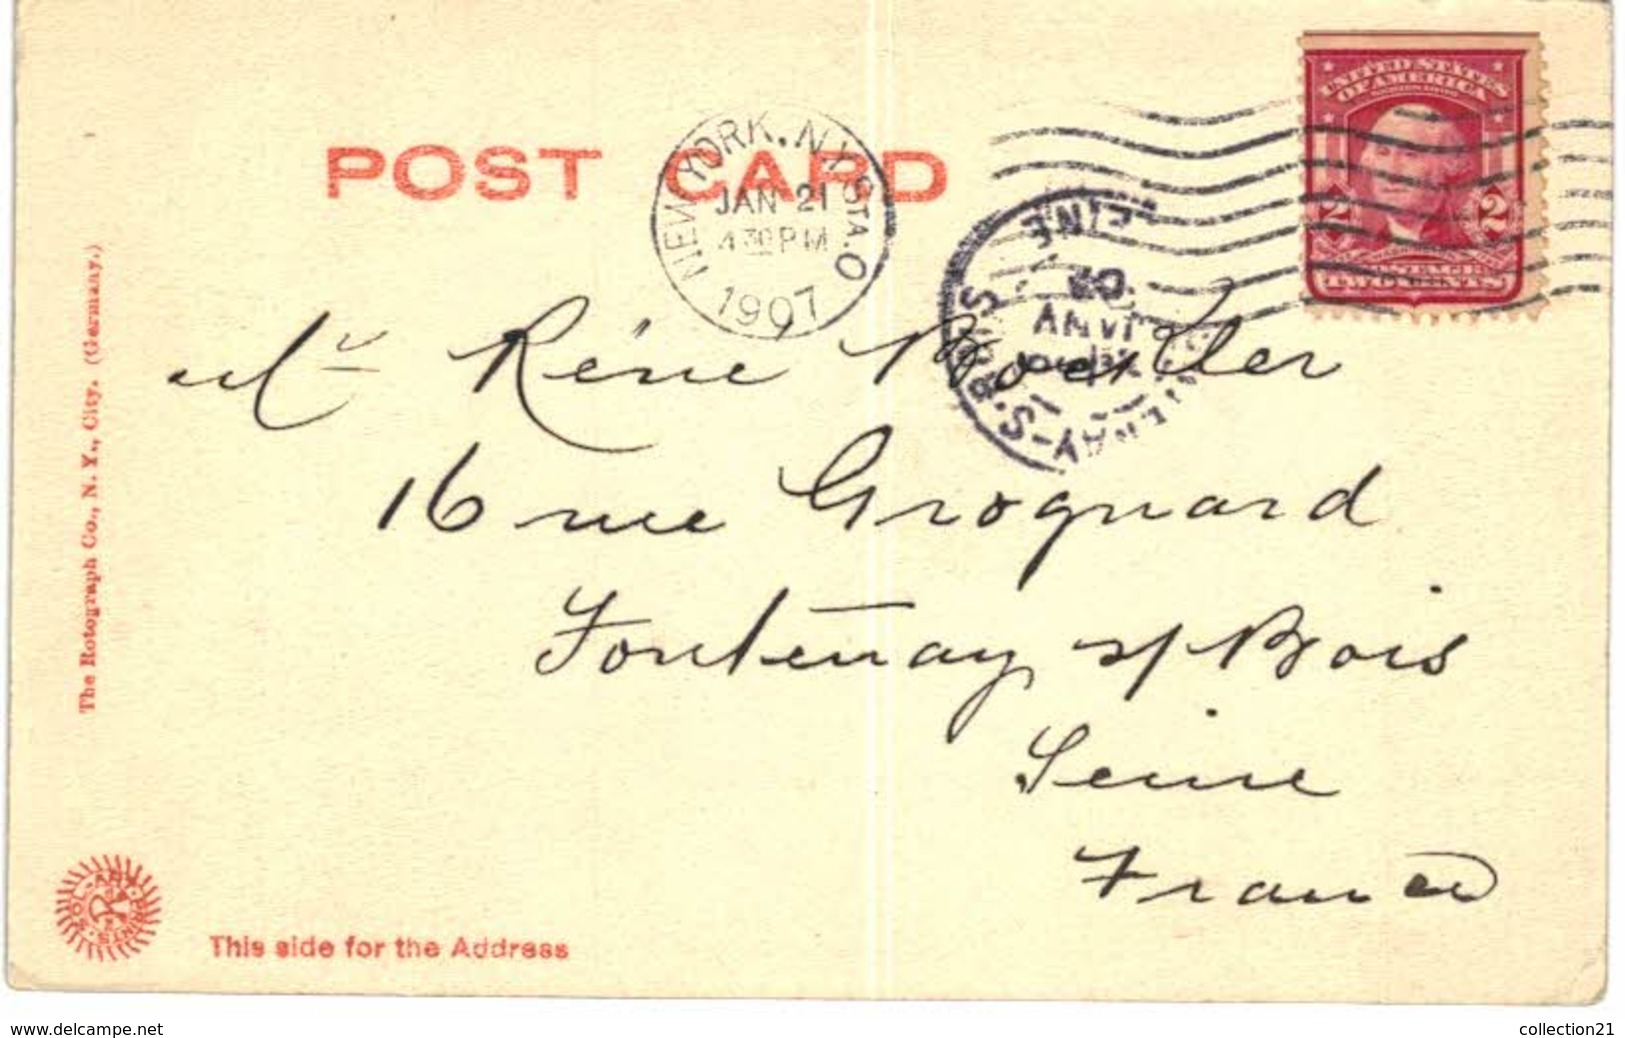 POST CARD
NEW YORK, N.Y. STA. O
JAN 21
4 30 PM
1907
UNITED STATES
OF AMERICA
2 2
TWO CENTS
The Rotograph Co., N. Y., City. (Germany.)
Mr René
16 rue Grognard
Fontenay s/ Bois
Seine
France
SOL-ART
PRINTS
This side for the Address
www.delcampe.net
collection21